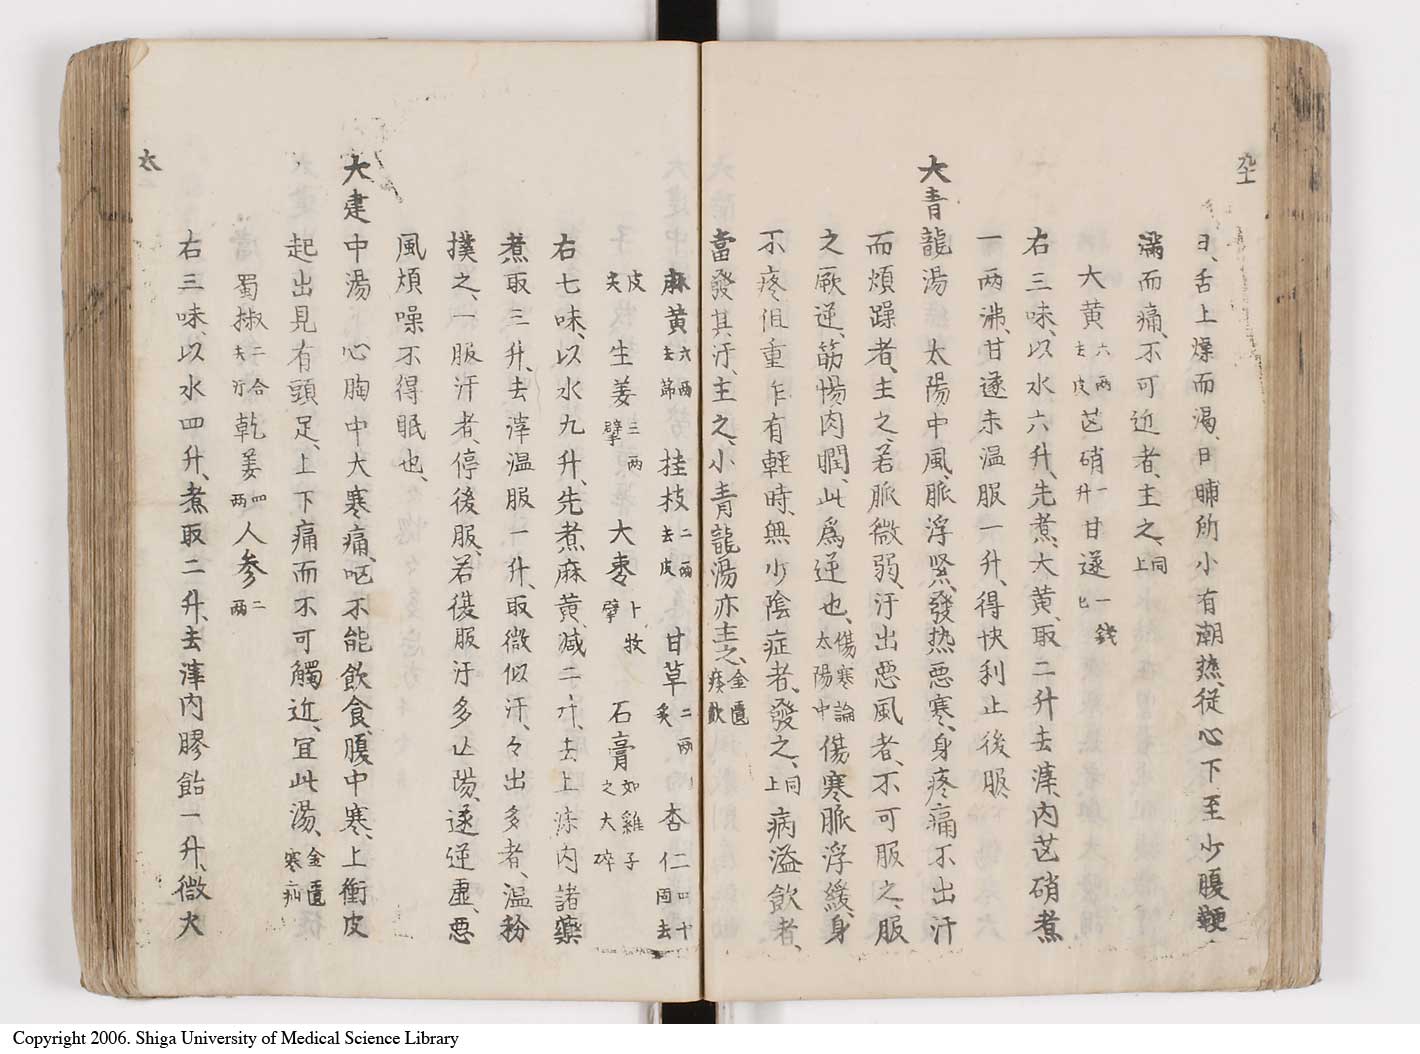 日、舌上燥而渴、日晡所小有潮热、從心下至少腹鞕
滿而痛、不可近者、主之、同上
大黄六兩去皮芒硝一升甘遂一錢匕
右三味、以水六升、先煮、大黄、取二升去滓、内芒硝煮
一两沸、甘遂末温服一升、得快利止後服
大青龍湯 太陽中風、脈浮緊、發热悪寒、身疼痛不出汗
而煩躁者、主之、若脈微弱、汗出悪風者、不可服之、服
之厥逆、筋惕肉瞤、此爲逆也、傷寒論太陽中傷寒脈浮緩、身
不疼但重乍有軽時、無少陰症者、發之、同上病溢飲者、
當發其汗、主之、小青龍湯亦主之、金匱痰飲
麻黄六兩去節 桂枝二兩去皮 甘草二兩炙 杏仁四十箇去
皮尖 生姜三两擘 大棗十枚擘 石膏如雞子之大碎
右七味、以水九升、先煮麻黄、减二升、去上沫内諸藥
煮取三升、去滓温服一升、取微似汗、々出多者、温粉
撲之、一服汗者、停後服、若復服汗多亡陽、遂逆虚、悪
風煩噪不得眠也、
大建中湯 心胸中大寒痛、呕不能飲食、腹中寒、上衝皮
起出見有頭足、上下痛而不可觸近、宜此湯、金匱寒疝
蜀椒二合去汗乾姜四兩人参二兩
右三味、以水四升、煮取二升、去滓内膠飴一升、微火